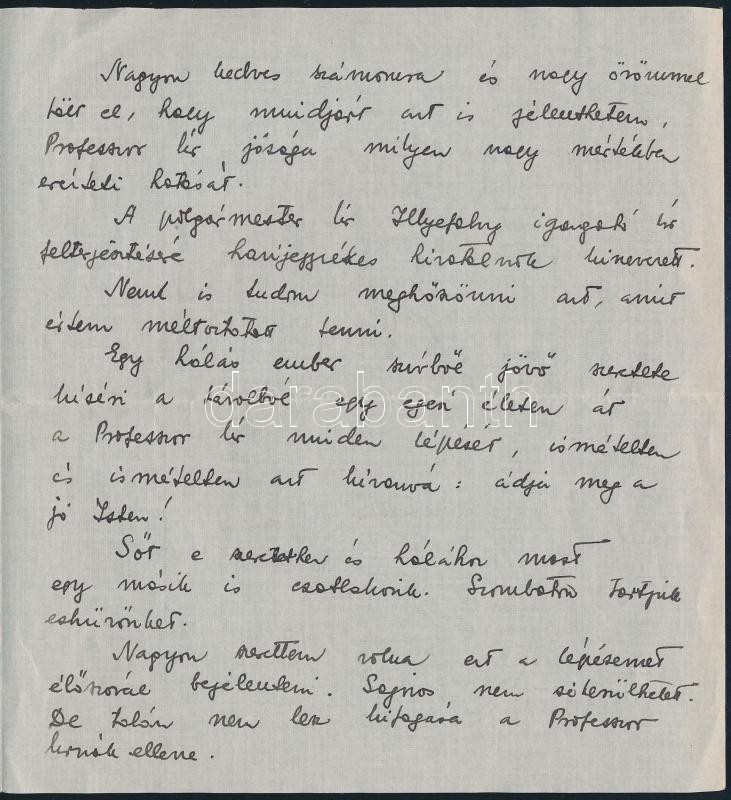 Nagyon kedves számomra és nagy örömmel
tölt el, hogy mindjárt azt is jelenthetem,
Professzor Úr jósága milyen nagy mértékben
érezteti hatását.
A polgármester Úr Illyefalvy igazgató úr
felterjesztésére havijegyzékes hivatalnok kinevezett.
Nem is tudom meghőszönni azt, amit
értem méltóztatott tenni.
Egy hálás ember szívből jövő szeretete
kíséri a távolból egy egész életen át
a Professzor Úr minden lépését, ismételten
és ismételten azt kívánva: adja meg a
jó Isten!
Sőt e szeretethez és hálához most
egy másik is csatlakozik. Szombaton tartjuk
esküvőnket.
Nagyon szerettem volna ezt a lépésemet
élőszóval bejelenteni. Sajnos nem sikerülhetett.
De talán nem lesz kifogása a Professzor
Úrnak ellene.
darabanth